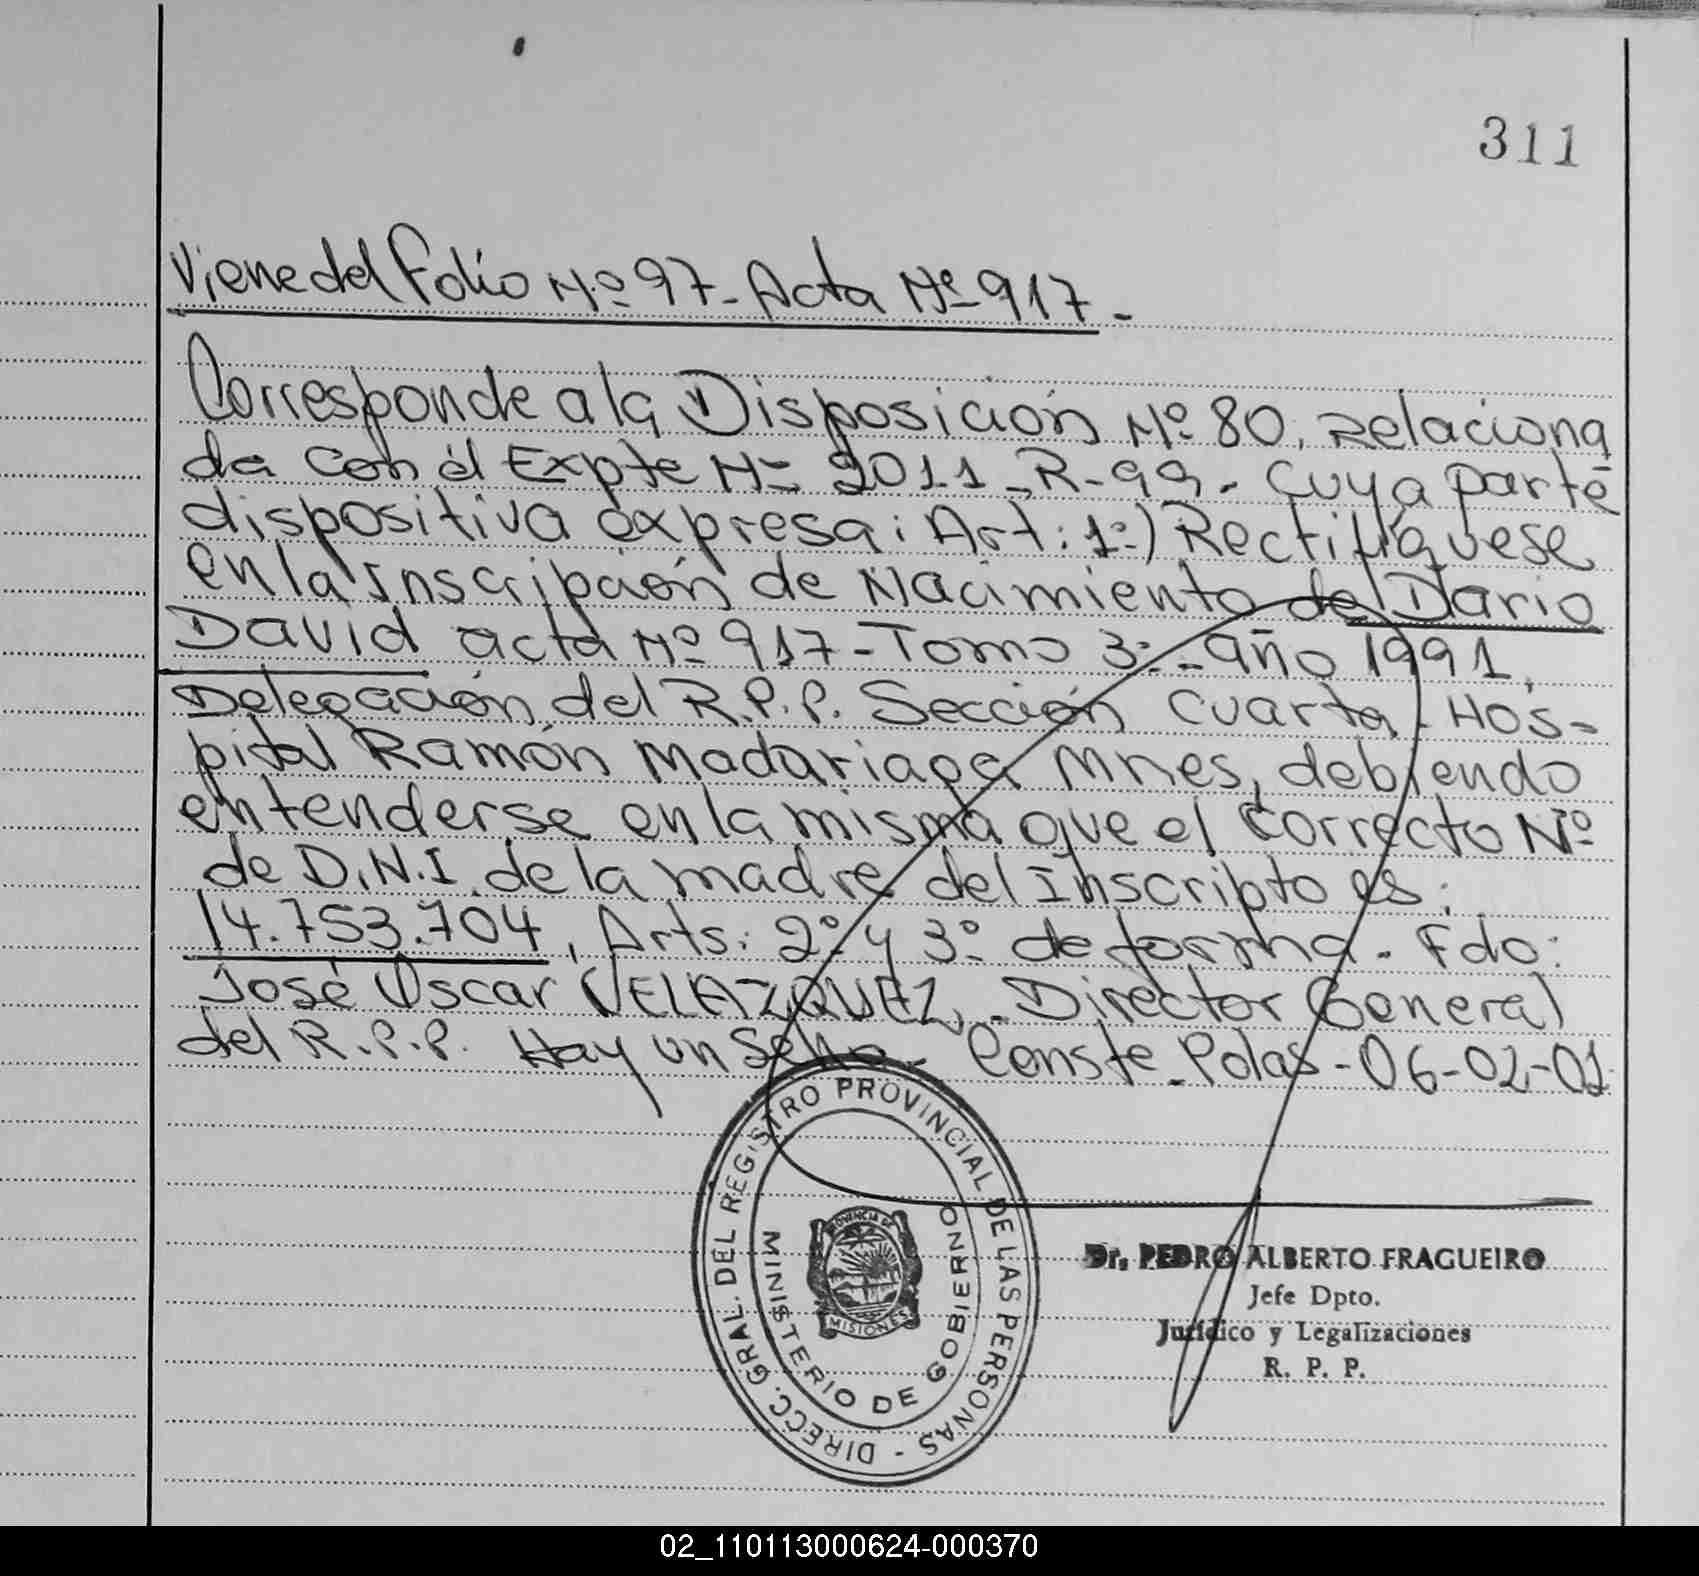 311
Viene del folio Nº 97 - Acta Nº 917 -
Corresponde a la Disposición Nº 80, relaciona
da con el Expte Nº 2011 - R - 99 - cuya parte
dispositiva expresa: Art: 1º) Rectifíquese
en la Inscripción de Nacimiento de Dario
David acta Nº 917 - Tomo 3º - año 1991,
Delegación del R.P.P. Sección Cuarta - Hos-
pital Ramón Madariaga Mnes, debiendo
entenderse en la misma que el correcto Nº
de D.N.I. de la madre del Inscripto es:
14.753.704, Arts: 2º y 3º de forma - Fdo:
José Oscar VELAZQUEZ, - Director General
del R.P.P. Hay un sello - Conste - Polas - 06-02-02
DIRECC. GRAL. DEL REGISTRO PROVINCIAL DE LAS PERSONAS -
MINISTERIO DE GOBIERNO
PROVINCIA DE
MISIONES
Dr. PEDRO ALBERTO FRAGUEIRO
Jefe Dpto.
Jurídico y Legalizaciones
R. P. P.
02_110113000624-000370